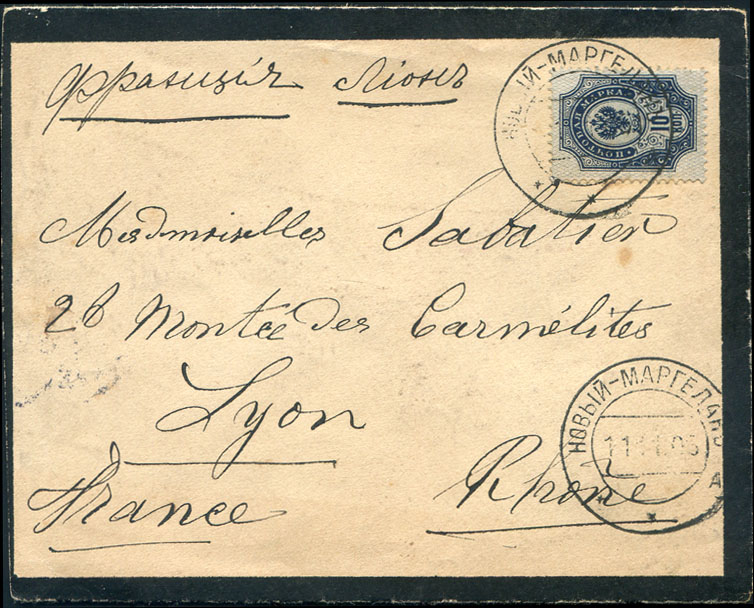 Франція Ліонъ
НОВЫЙ-МАРГЕЛ
ПОЧТОВАЯ МАРКА
10
Mesdmoiselles Sabatier
28 Montée des Carmélites
Lyon
France Rhône
НОВЫЙ-МАРГЕЛАНЪ
А